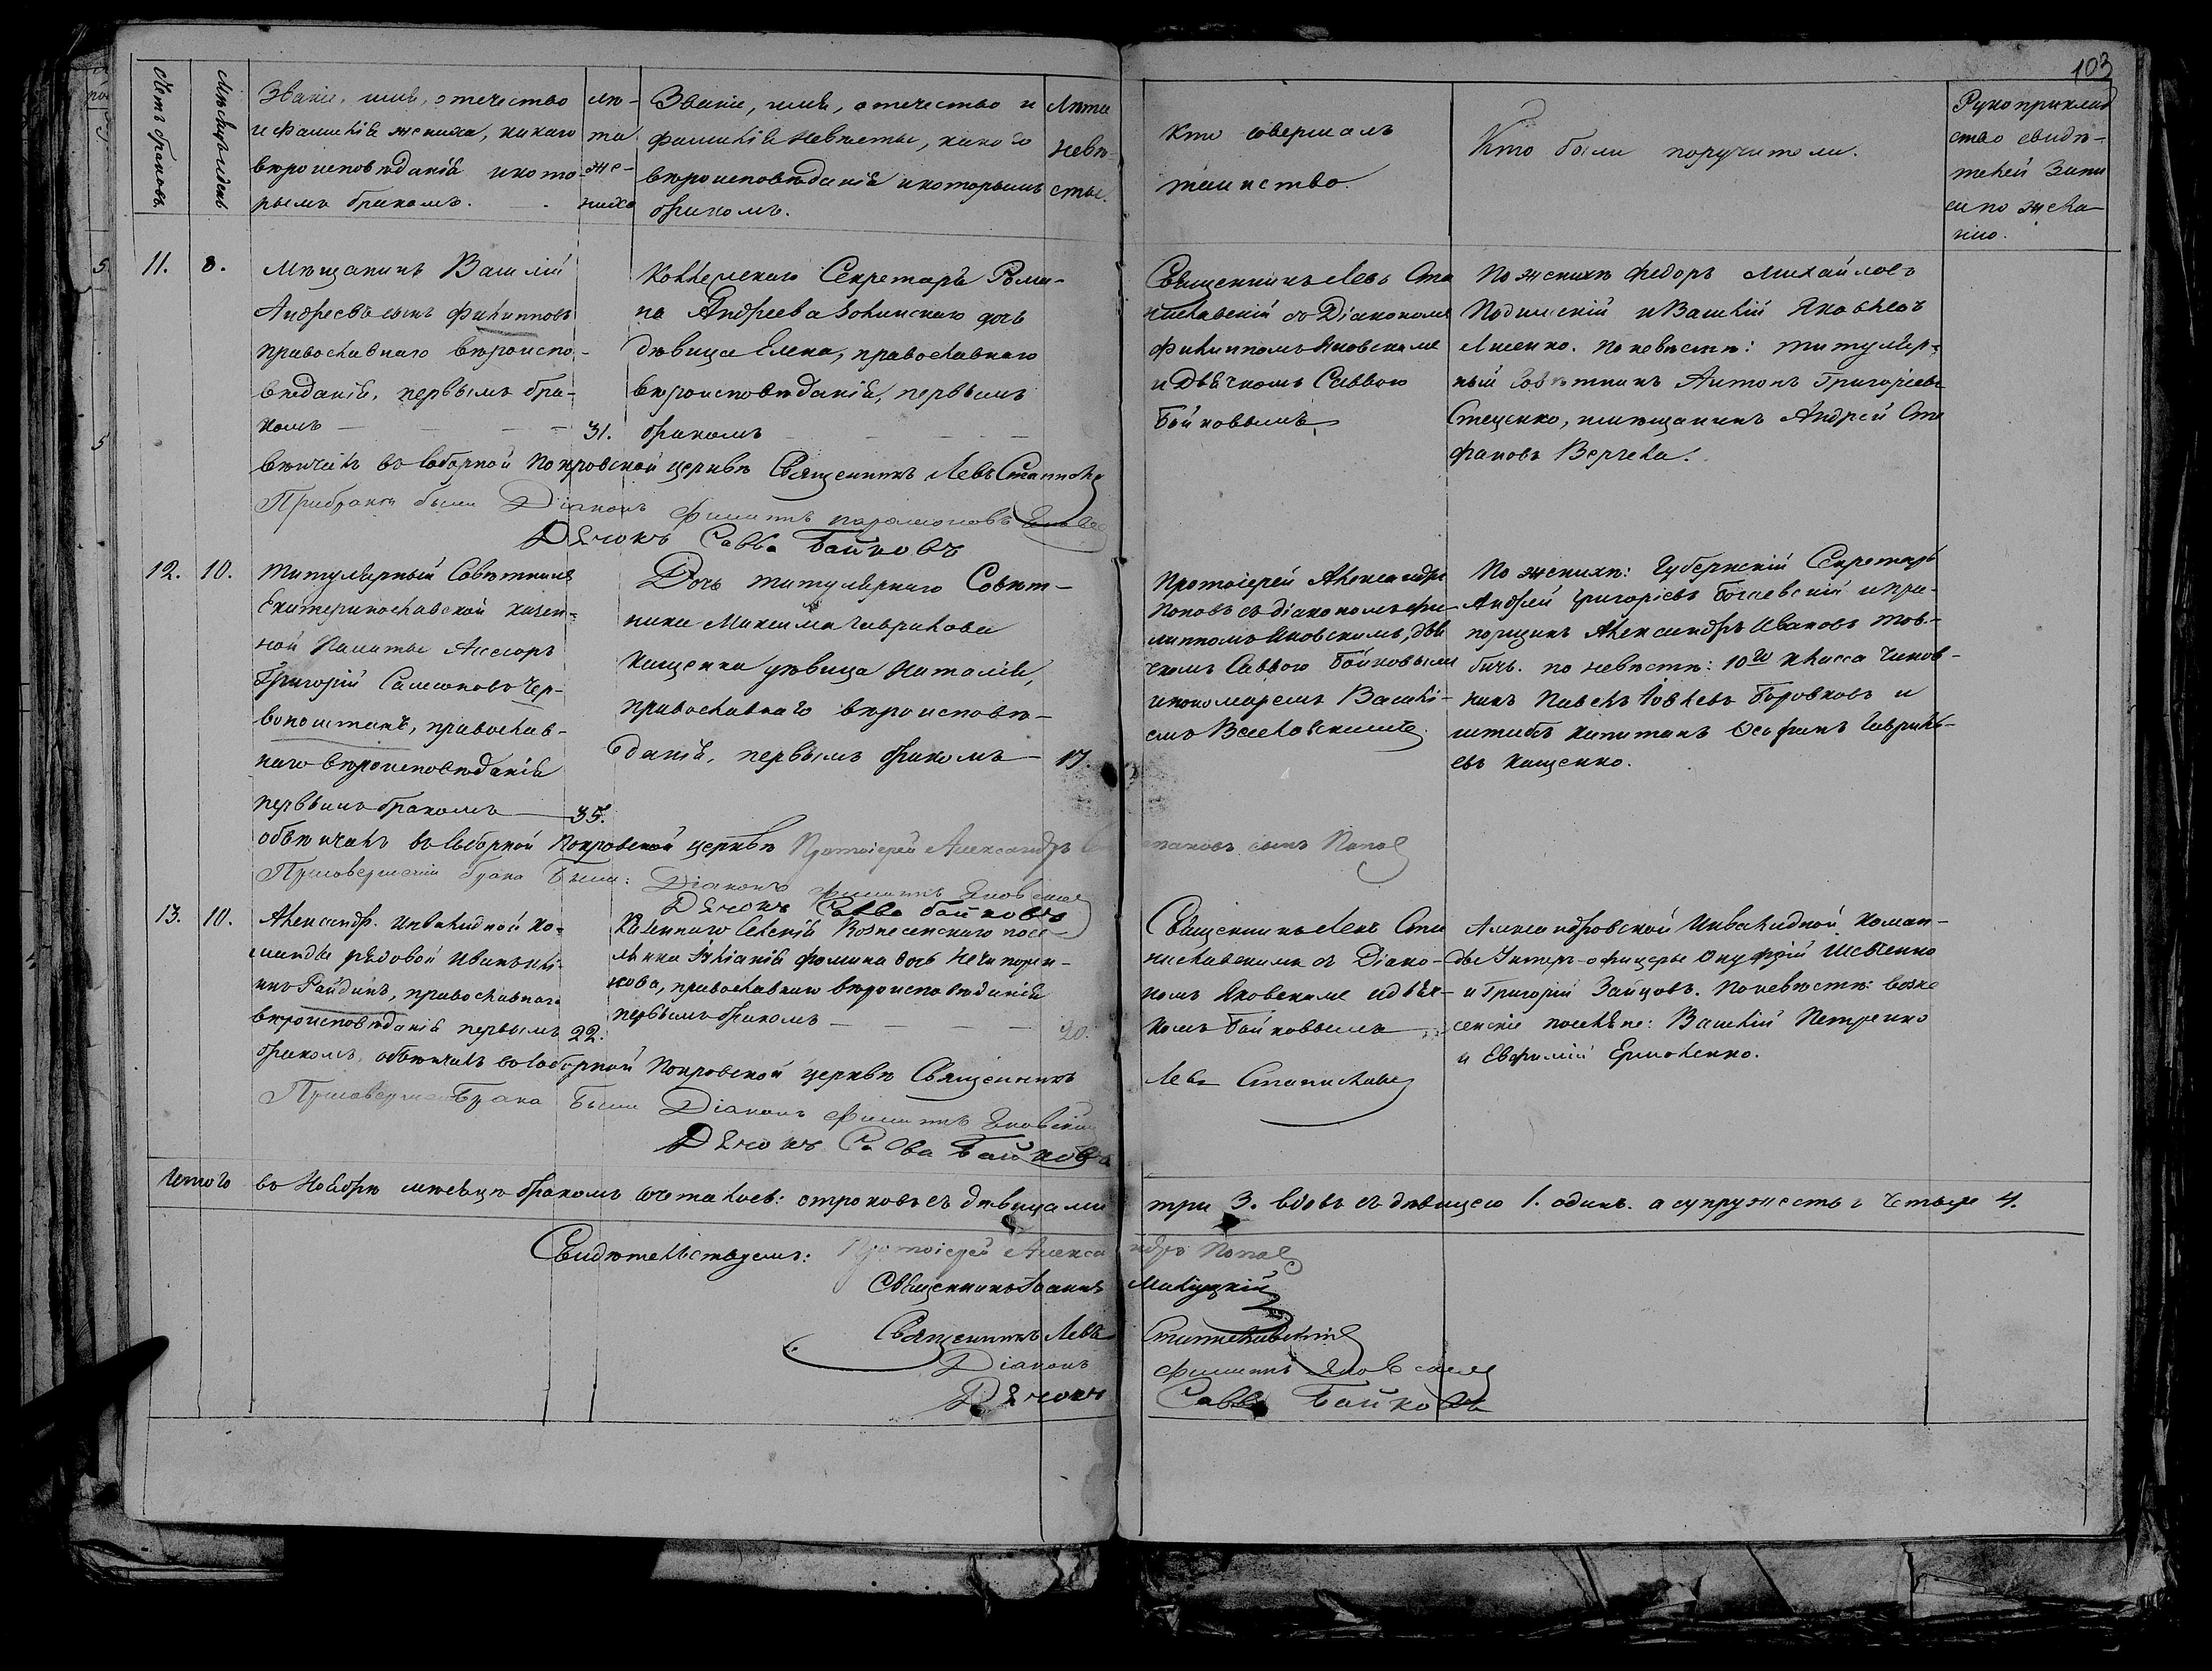 103
Счетъ браковъ
Мѣсяцъ и день
Званіе, имя, отечество
и фамилія жениха, какаго
вѣроисповѣданія и кото-
рымъ бракомъ.
лѣ-
та
же-
ниха
Званіе, имя, отечество и
фамилія невѣсты, какого
вѣроисповѣданія и которымъ
бракомъ.
Лѣта
невѣ-
сты.
Кто совершалъ
таинство.
Кто были поручители.
Рукоприклад
ство свидѣ-
телей Запи
си по жела-
нію.
11. 8.
Мѣщанинъ Василій
Андреевъ сынъ Филипповъ
православнаго вѣроиспо-
вѣданія, первымъ бра-
комъ 31.
Коллежскаго Секретаря Рома-
на Андреева дочь
дѣвица Елена, православнаго
вѣроисповѣданія, первымъ
бракомъ
Священникъ Левъ Ста
ниславскій съ Діакономъ
Филиппомъ Яновскимъ
и Дьячкомъ Саввою
Байковымъ
По женихѣ Федоръ Михайловъ
и Василій Яковлевъ
Лисенко. По невѣстѣ: титуляр-
ный Совѣтникъ Антонъ Григоріевъ
Стеценко, мѣщанинъ Андрей Сте
фановъ Вергела.
вѣнчалъ въ Соборной Покровской церквѣ Священникъ Левъ
При бракѣ были Діаконъ Филиппъ
Дячокъ Савва Байковъ
12. 10.
Титулярный Совѣтникъ
Екатеринославской казен-
ной Палаты Ассесоръ
Григорій Самсоновъ Чер-
вонноштанъ, православ-
наго вѣроисповѣданія
первымъ бракомъ 35.
Дочь титулярнаго Совѣт-
ника Максима Гаврилова
Кащенка дѣвица Наталія,
православнаго вѣроисповѣ-
данія, первымъ бракомъ 17.
Протоіерей Александръ
Поповъ съ діакономъ Фи-
липпомъ Яновскимъ, дья
чкомъ Саввою Байковымъ
и пономаремъ Василі-
емъ
По женихѣ: Губернскій Секретарь
Андрей Григоріевъ и пра-
порщикъ Александръ Ивановъ Тов-
бичъ. по невѣстѣ: 10го класса Чинов-
никъ Павелъ Іовлевъ Боровковъ и
штабъ капитанъ Гаврил-
евъ Кащенко.
обвѣнчалъ въ Соборной Покровской церквѣ Протоіерей Александръ Степановъ сынъ Поповъ
При совершеніи брака были: Діаконъ Филиппъ Яновскій
Дячокъ Савва Байковъ
13. 10.
Александр. Инвалидной Ко-
манды рядовой Иванъ
Гайдинъ, православнаго
вѣроисповѣданія первымъ 22.
Казеннаго Селенія Вознесенскаго посе-
лянка Іуліанія Фомина дочь
православнаго вѣроисповѣданія
первымъ бракомъ 20.
Священникъ Левъ Ста
ниславскимъ съ Діако-
номъ Яновскимъ и дьяч-
комъ Байковымъ
Александровской Инвалидной Коман-
ды Унтеръ-офицеры Онуфрій Шевченко
и Григорій Зайцовъ. По невѣстѣ: возне
сенскіе поселяне: Василій Петренко
и Евфимій Ермоленко.
бракомъ, обвѣнчалъ въ Соборной Покровской церквѣ Священникъ
Левъ Станиславскій
При совершеніи брака были Діаконъ Филиппъ Яновскій
Дячокъ Савва Байковъ
Итого въ Ноябрѣ мѣсяцѣ бракомъ сочеталось: отроковъ съ дѣвицами три 3. вдовъ съ дѣвицею 1. одинъ. а супружествъ четыре 4.
Свидѣтельствуемъ: Протоіерей Александръ Поповъ
Священникъ Іоаннъ
Священникъ Левъ Станиславскій
Діаконъ Филиппъ Яновскій
Дячокъ Савва Байковъ